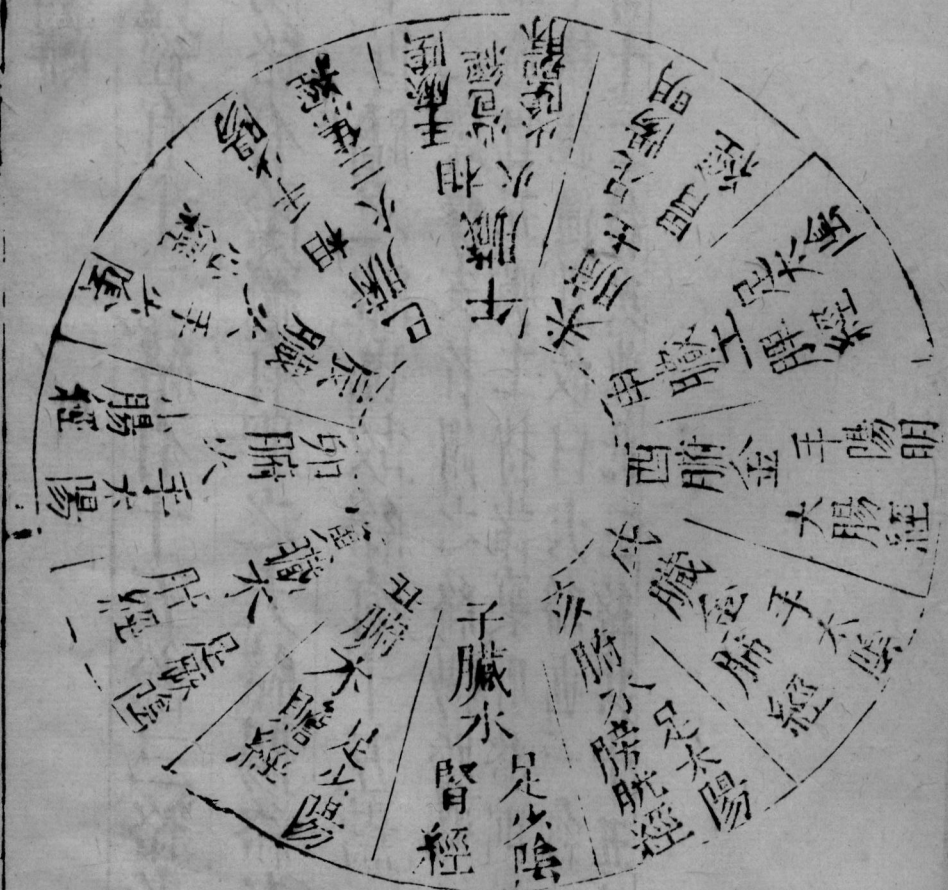 子臟水
足少陰
腎經
丑腑木
足少陽
膽經
寅臟木
足厥陰
肝經
卯腑火
手太陽
小腸經
辰臟火
手少陰
心經
巳腑相火
手少陽
三焦經
午臟相火
手厥陰
心包經
未腑土
足陽明
胃經
申臟土
足太陰
脾經
酉腑金
手陽明
大腸經
戌臟金
手太陰
肺經
亥腑水
足太陽
膀胱經